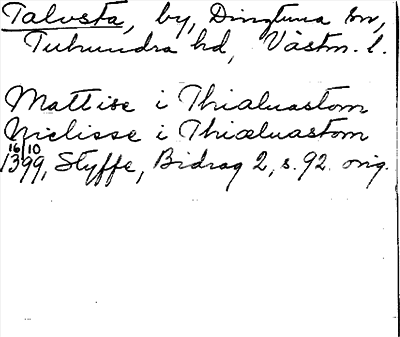 Talusta, by, Dingtuna sn,
Tuhundra hd, Västm. l.
Mattise i Thialuastom
Niclisse i Thiæluastom
16/10 1399, Styffe, Bidrag 2, s. 92. orig.